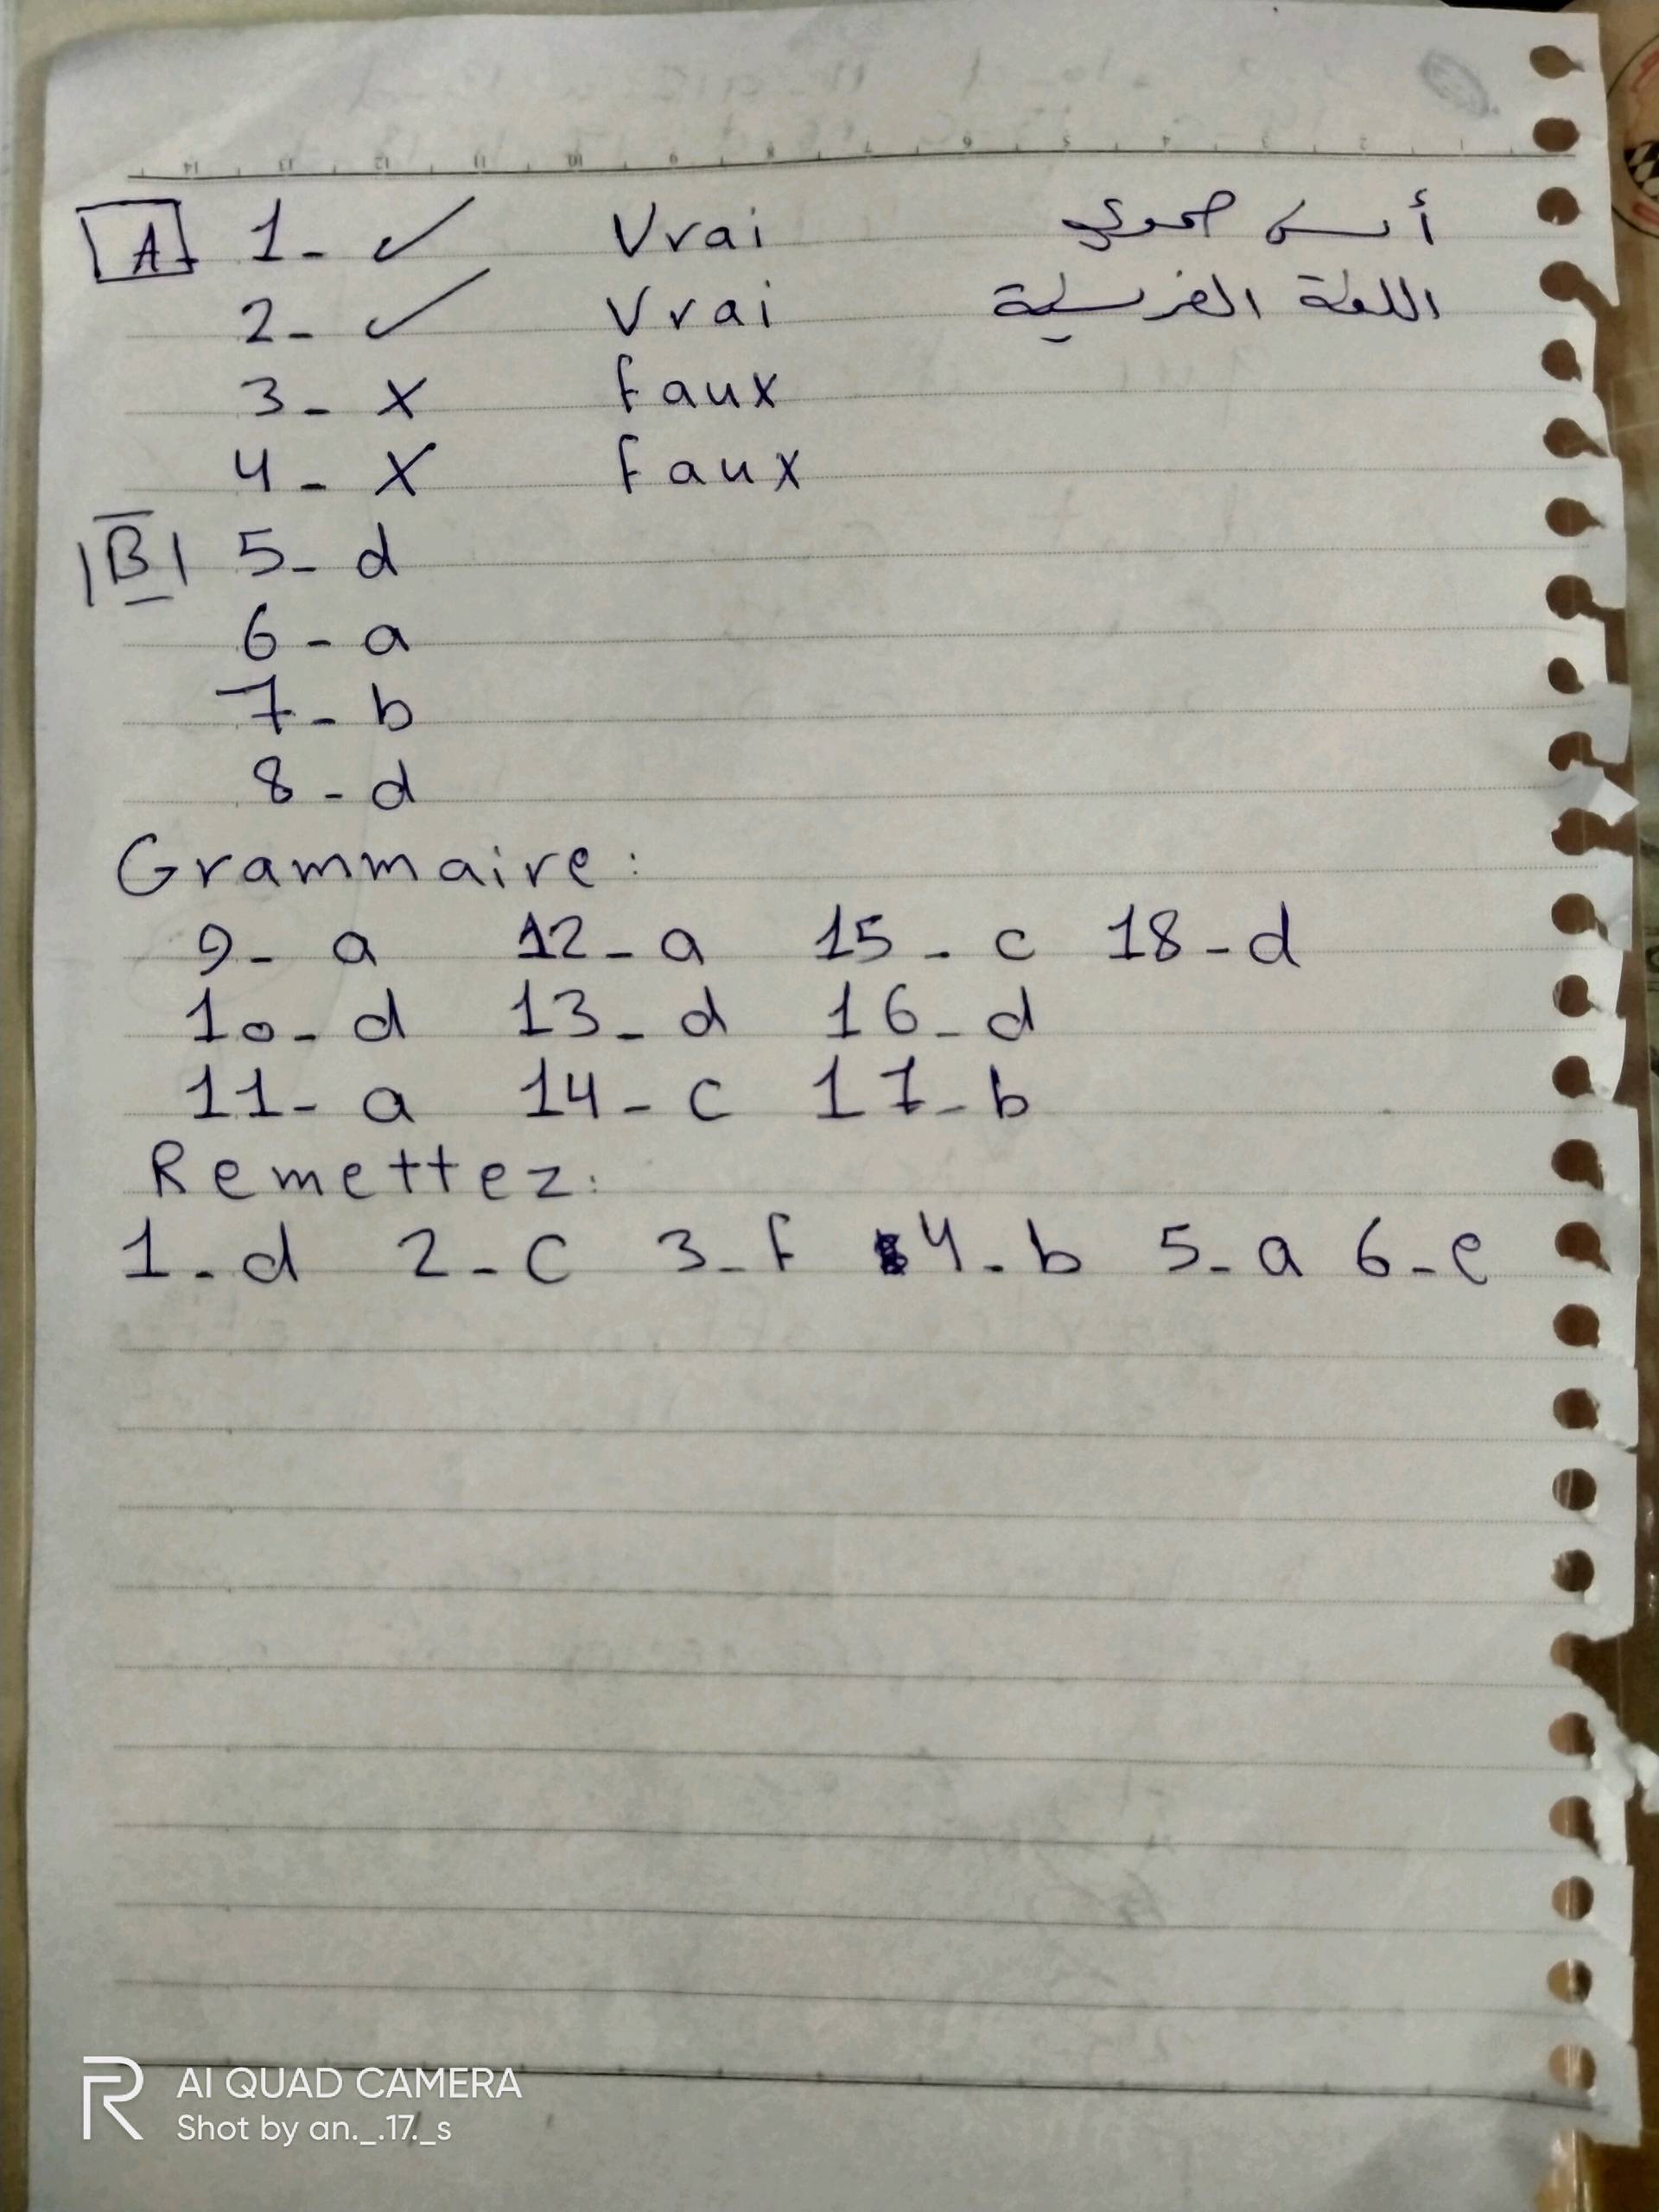 A 1- ✓ Vrai أنس حموي
2- ✓ Vrai اللغة الفرنسية
3- X Faux
4- X Faux
B 5- d
6- a
7- b
8- d
Grammaire:
9- a 12- a 15- c 18- d
10- d 13- d 16- d
11- a 14- c 17- b
Remettez:
1- d 2- c 3- f 4- b 5- a 6- e
AI QUAD CAMERA
Shot by an._.17._s